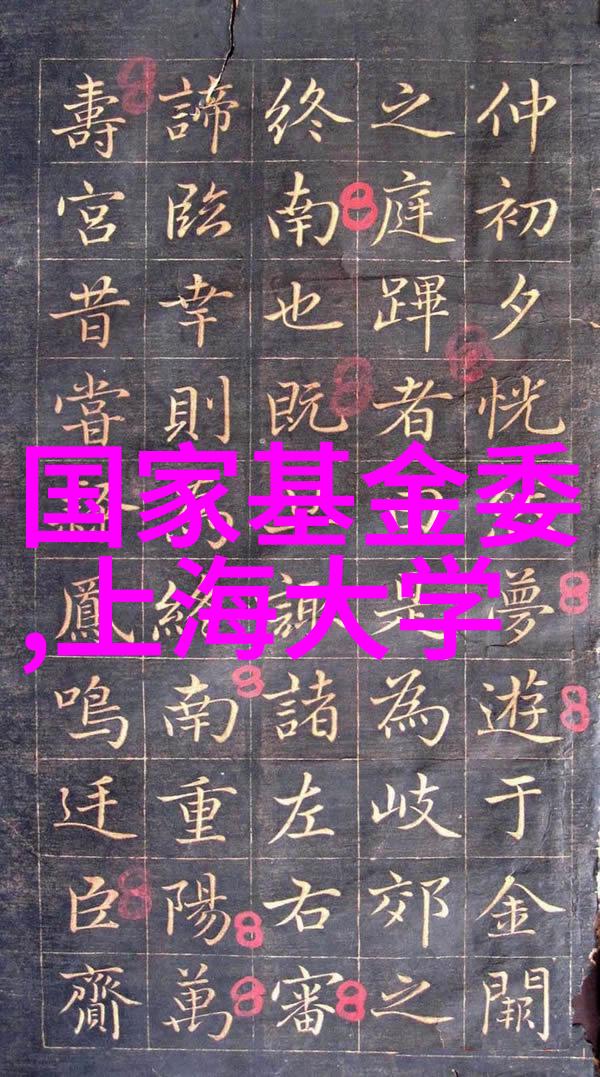 仲初夕恍夢遊于金闕
之庭蹕者是為岐郊之
終南也既諏諸左右審
諦臨幸則終南重陽萬
壽宮昔嘗鳳鳴廷臣齎
国家基金委
,上海大学